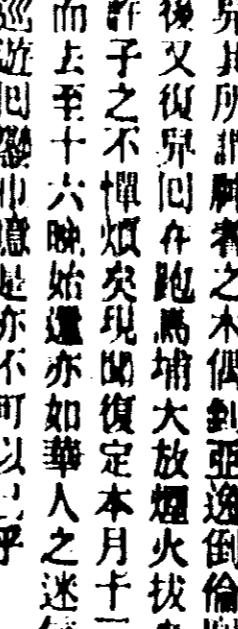 舁其所謂騎者之木偶到亞逸倒倫
後又復舁囘在跑馬埔大放煙火拔
許子之不憚煩矣現聞復定本月十
而去至十六晚始還亦如華人之迷
巡遊囘鑾巾噫是亦不可以已乎